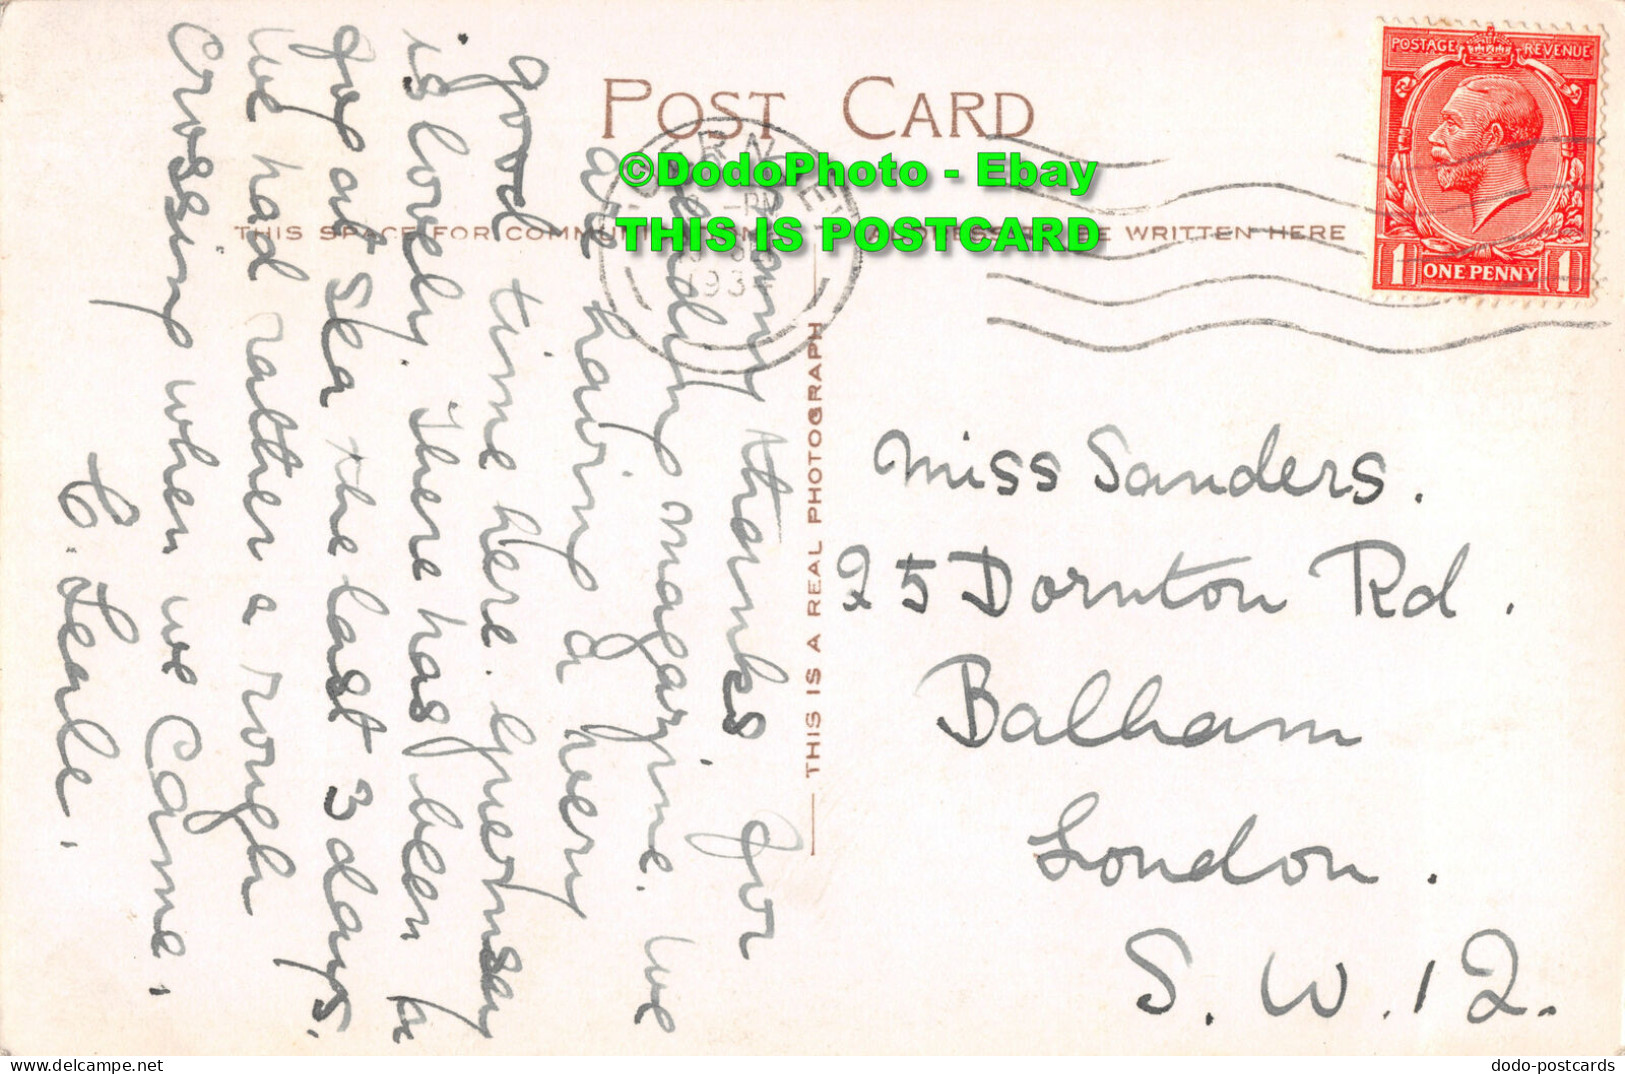 POST CARD
THIS SPACE FOR COMMUN
ADDRESS
BE WRITTEN HERE
THIS IS A REAL PHOTOGRAPH
POSTAGE REVENUE
1 ONE PENNY 1
GUERNSEY
193
©DodoPhoto - Ebay
THIS IS POSTCARD
Many thanks for
sending magazine. We
are having a very
good time here. Guernsey
is lovely. There has been a
fog at Sea the last 3 days.
We had rather a rough
Crossing when we Came.
C. Searle.
Miss Sanders.
25 Dornton Rd.
Balham
London.
S.W.12.
dodo-postcards